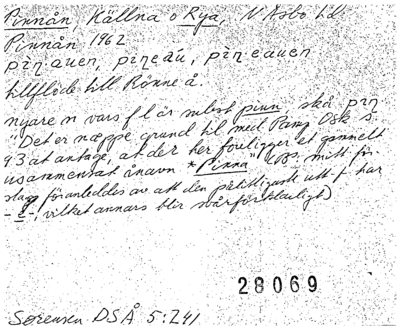 Pinnån, Källna o Rya, N Åsbo hd.
Pinnån 1962
piŋauen, piŋeáu, piŋeauen
tillflöde till Rönne å.
nyare n vars f l är subst pinn skå piŋ
"Det er næppe grund til med Pamp Dsk s.
93 at antage, at der her foreligger et gammelt
usammensat ånavn *Pinna" (Ps. mitt för
slag föranleddes av att den målsägaste utt. f har
-e-, vilket annars blir svårförklarligt)
28069
Sørensen DSÅ 5:241